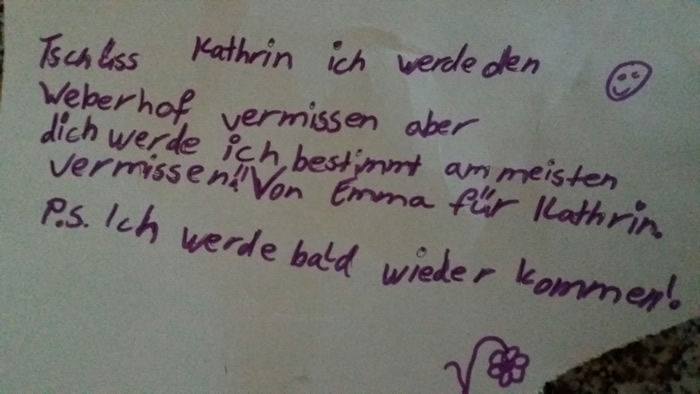 Tschüss Kathrin ich werde den
Weberhof vermissen aber
dich werde ich bestimmt am meisten
vermissen!! Von Emma für Kathrin.
P.S. Ich werde bald wieder kommen!